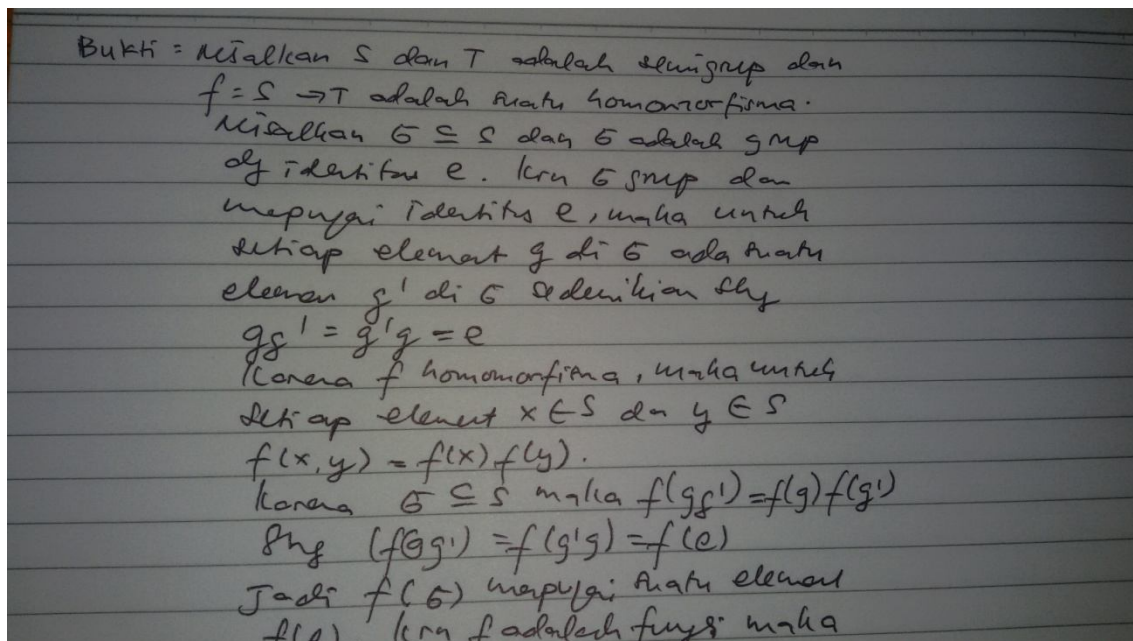 Bukti = Misalkan S dan T adalah semigrup dan
f = S → T adalah suatu homomorfisma.
Misalkan G ⊆ S dan G adalah grup
dg identitas e. krn G grup dan
mepunyai identitas e, maka untuk
setiap element g di G ada suatu
elemen g' di G sedemikian shg
gg' = g'g = e
Karena f homomorfisma, maka untuk
setiap element x ∈ S dan y ∈ S
f(x,y) = f(x) f(y).
Karena G ⊆ S maka f(gg') = f(g) f(g')
Shg (f(gg') = f(g'g) = f(e)
Jadi f(G) mepunyai suatu element
f(e) krn f adalah fungsi maka